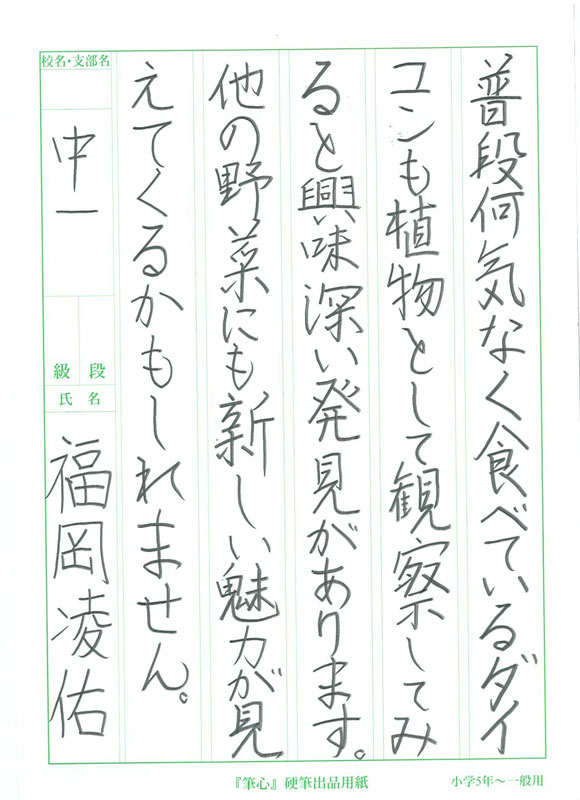 普段何気なく食べているダイ
コンも植物として観察してみ
ると興味深い発見があります。
他の野菜にも新しい魅力が見
えてくるかもしれません。
校名・支部名
中一
級 段
氏 名
福岡凌佑
『筆心』硬筆出品用紙
小学5年～一般用